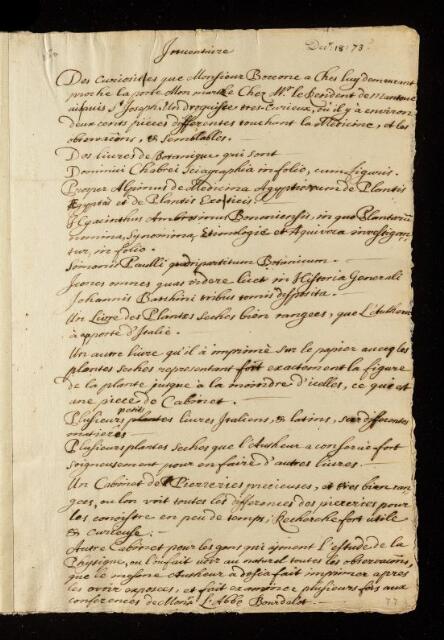 Inventaire
Des Curiositéz que Monsieur Boccone a Chez luy demeurant
proche la porte Chez Mr. le
St. Joseph, Un droguiste tres-Curieux, où il y à environ
deux cens pieces differentes touchant la Medicine, et les
observaõns, & semblables.
Des livres de Botanique qui sont
Dominici Chabrei Sciagraphia in folio, cum figuris.
Prosper Alpinus de Medicina Ægyptiorum de Plantis
Ægypti et de Plantis Exoticis.
Hyacinthus Ambrosinus Bononiensis, in quo Plantarũ
nomina, Synonima, Etimologie et Æquivoca
tur, in folio.
Simonis Paulli quadripartitum Botanicum.
Icones omnes quas videre licet in Historia Generali
Johannis Bauhini tribus tomis disposita.
Un Livre des Plantes seches bien rangees, que l'Autheur
à apporté d'Italie.
Un autre livre qu'il à imprimé sur le papier avec les
plantes seches representant fort exactement la figure
de la plante jusque à la moindre d'icelles, ce que est
une piece de Cabinet.
Plusieurs petits livres Italiens, & latins, sur differentes
matieres
Plusieurs plantes seches que l'Autheur a conservé fort
soigneusement pour en faire d'autres livres.
Un Cabinet de Pierreries precieuses, et tres bien ran-
gees, ou lon voit toutes les differences des pierreries pour
les conoistre en peu de temps; Recherche fort utile
& curieuse:
Autre Cabinet pour les gens qui ayment l'estude de la
Physique, ou l'on fait voir au naturel toutes les observaõns,
que le mesme Autheur à desia fait imprimer apres
les avoir exposees, et fait examiner plusieurs fois aux
conferences de Monsr. L'Abbé Bourdelot.